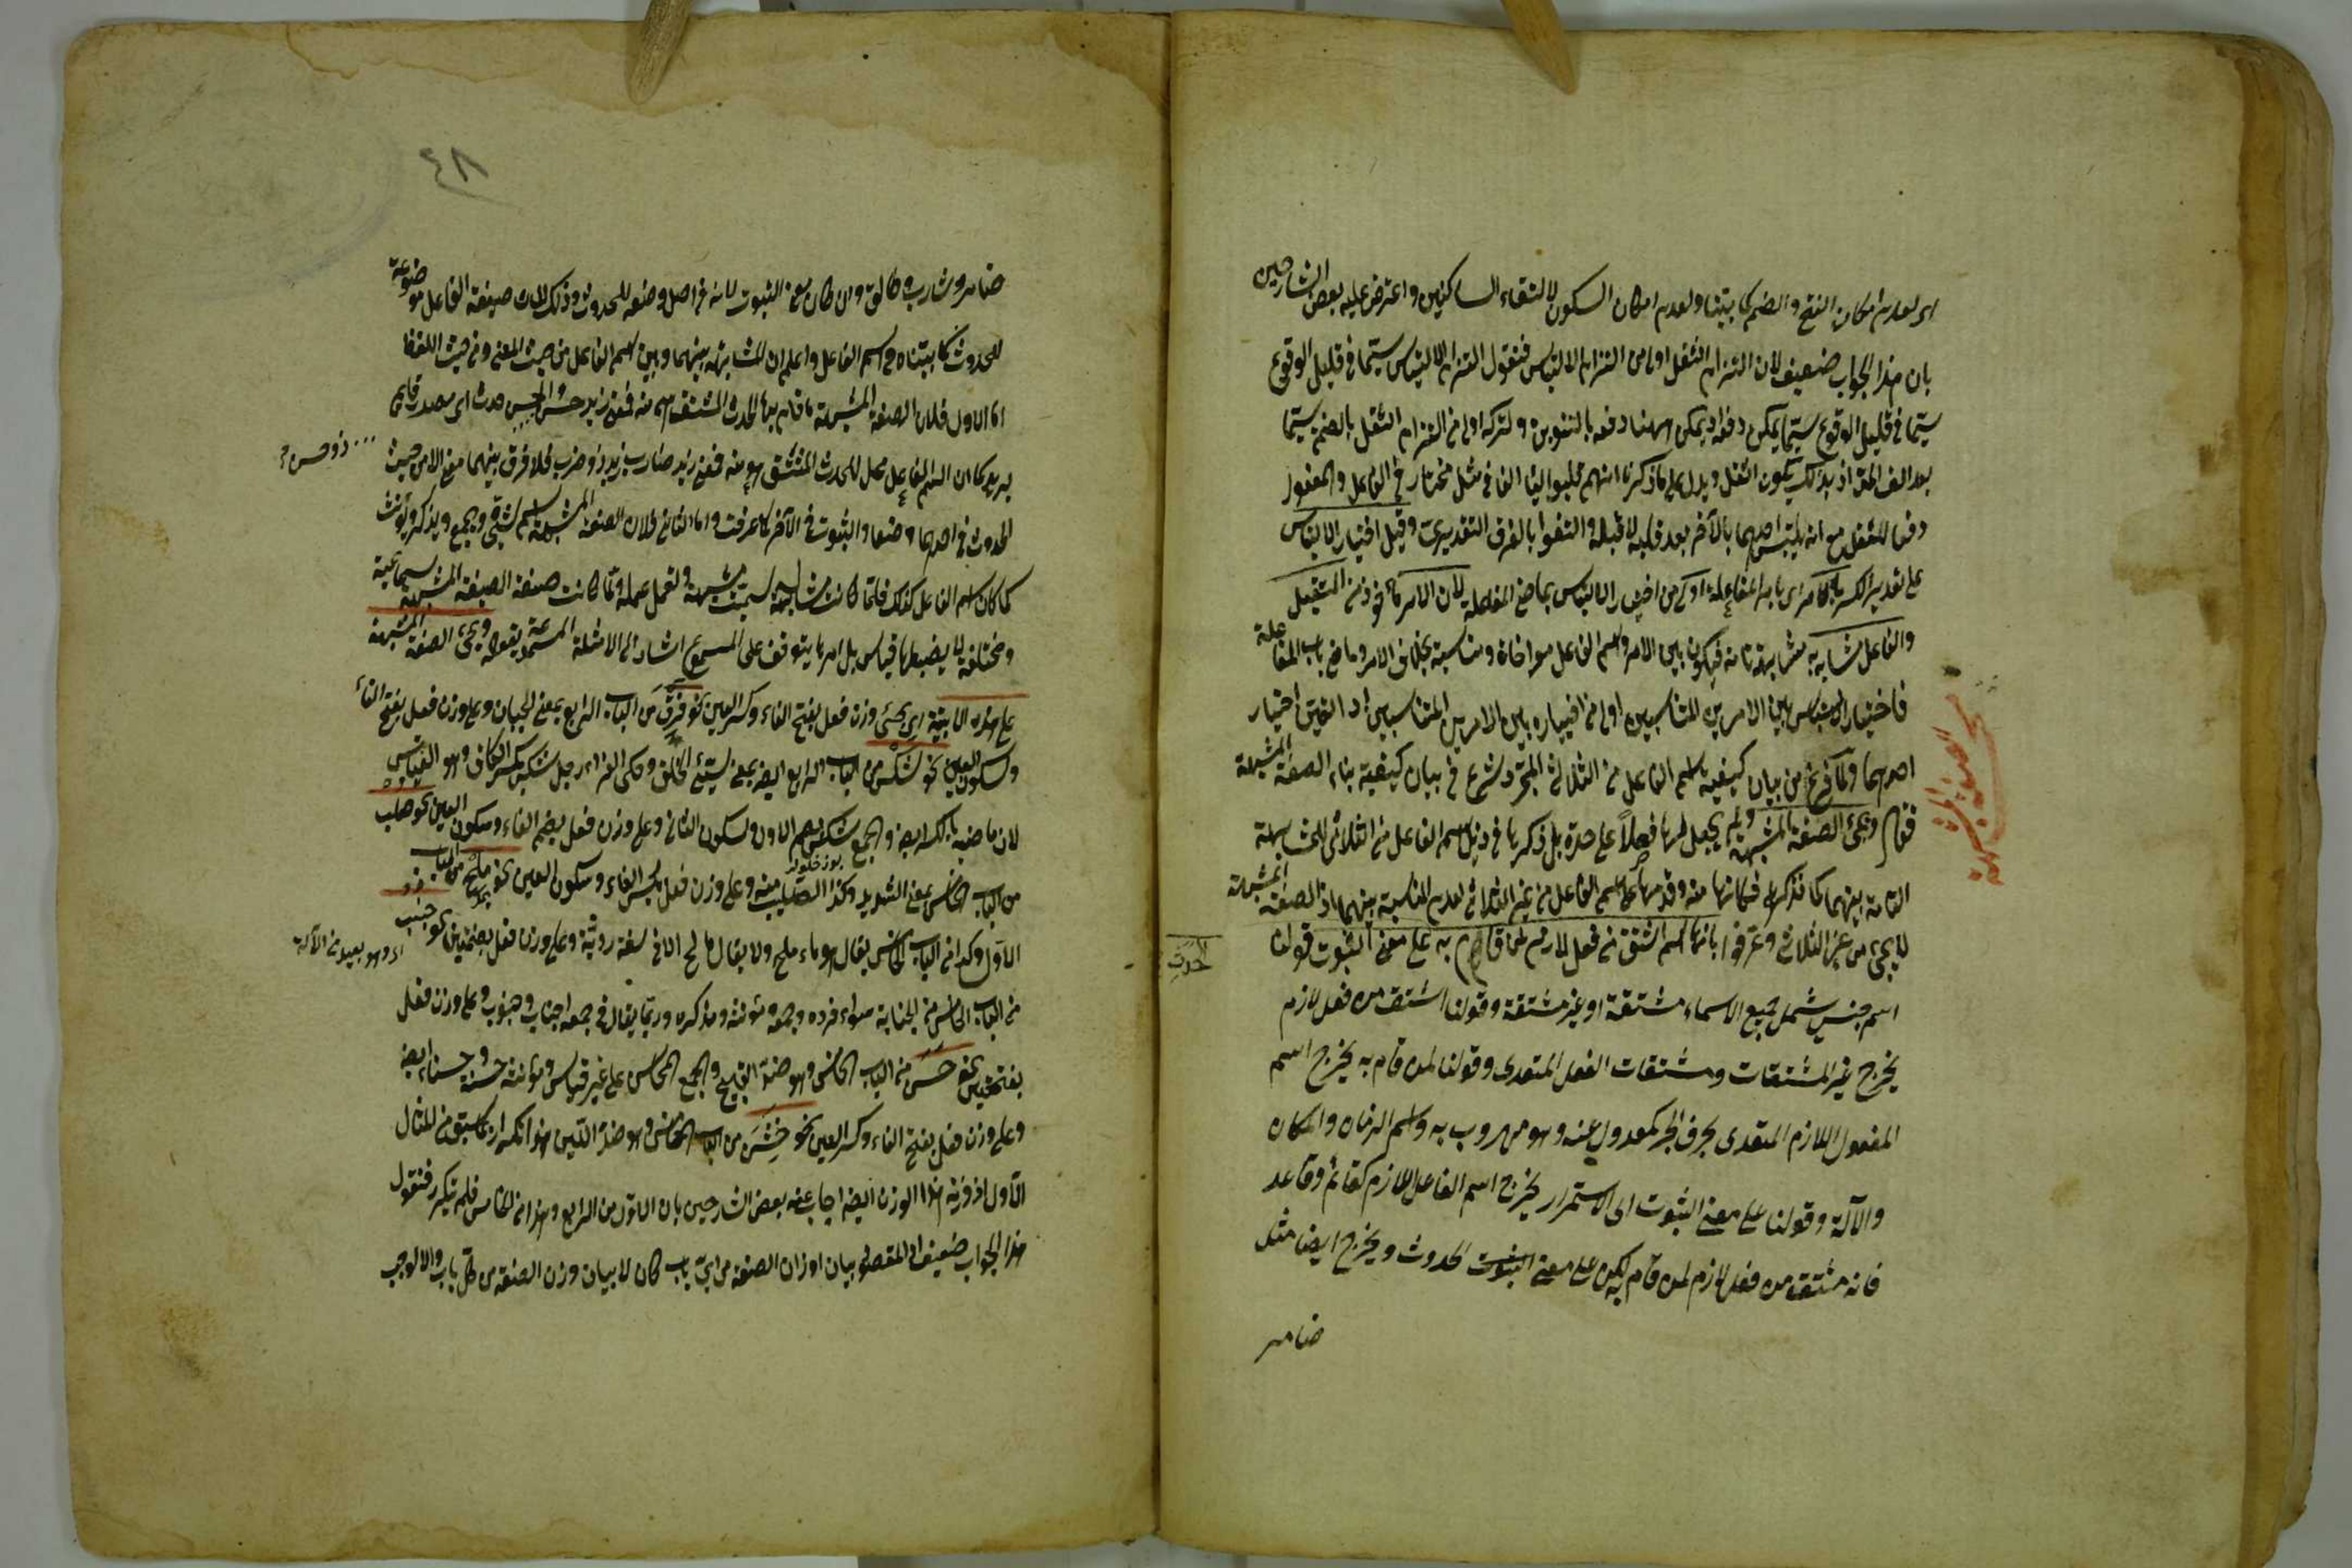 اى لعدم امكان الفتح والضم كما بيتنا ولعدم امكان السكون لالتقاء الساكنين واعترض عليه بعض الشارحين
بان هذا الجواب ضعيف لان التزام الثقل اولى من التزام الالتباس فنقول التزام الالتباس سيما فى قليل الوقوع
سيما فى قليل الوقوع سيما يمكن دفعه ويمكن ههنا دفعه بالتنوين وتركه اولى من التزام الثقل بالضمة سيما
بعد الف اذ بذلك يكون الثقل ويدل على ما ذكرنا انهم قلبوا الياء الفا فى مثل مختار فى الفاعل والمفعول
دفعا للثقل مع انه يلتبس احدهما بالآخر بعد قلبه لا قبله والتفوا بالفرق التقديرى وقيل اختيار الالتباس
على تقدير الكسر بالامر اى بامر المفاعلة اولى من اختيار الالتباس بماضى المفاعلة لان الامر مأخوذ من المستقبل
والفاعل مشابه به مشابهة تامة فيكون بين الامر واسم الفاعل مواخاة ومناسبة بخلاف الامر وماضى باب المفاعلة
فاختيار الالتباس بين الامرين المتناسبين اولى من اختياره بين الامرين المتناسبين اختيار
احدهما ولما فرغ من بيان كيفية اسم الفاعل من الثلاثى المجرد شرع فى بيان كيفية بناء الصفة المشبهة
فقال وتجئ الصفة المشبهة ولم يجعل لها فصلا على حدة بل ذكرها فى ذيل اسم الفاعل من الثلاثى للمشابهة
التامة بينهما كما نذكر فكانها منه وقدمها على اسم الفاعل من غير الثلاثى لعدم المناسبة بينهما اذ الصفة المشبهة
لا يجئ من غير الثلاثى وعرفوا بانها اسم اشتق من فعل لازم لمن قام به على معنى الثبوت قولنا
اسم جنس شمل جميع الاسماء مشتقة او غير مشتقة وقولنا اشتق من فعل لازم
يخرج غير المشتقات ومشتقات الفعل المتعدى وقولنا لمن قام به يخرج اسم
المفعول اللازم المتعدى بحرف الجر كمعدول عنه وهو مهروب به واسم الزمان والمكان
والآلة وقولنا على معنى الثبوت اى الاستمرار يخرج اسم الفاعل اللازم كقائم وقاعد
فانه مشتق من فعل لازم لمن قام به لكن على معنى الحدوث ويخرج ايضا مثل
ضامر
الصفة المشبهة
الحدث
٤٨
ضامر وشارب وطالق وان كان بمعنى الثبوت لانه فى اصل وضعه للحدوث وذلك لان صيغة الفاعل موضوعة
للحدوث كما بيتناه فى اسم الفاعل واعلم ان المشابهة بينهما وبين اسم الفاعل من حيث المعنى ومن حيث اللفظ
اما الاول فلان الصفة المشبهة ما قام بها الحدث المشتق هى منه فمعنى زيد حسن حدث اى مصدر قايم
به كما ان اسم الفاعل محل للحدث المشتق هو منه فمعنى زيد ضارب زيد ذو ضرب فلا فرق بينهما معنى الا من حيث
الحدوث فى احدهما وضعا والثبوت فى الآخر كما عرفت واما الثانى فلان الصفة المشبهة يثنى ويجمع ويذكر ويؤنث
كما كان اسم الفاعل كذلك فلما كانت مشابهة سميت مشبهة وتعمل عمله ولما كانت صيغة الصفة المشبهة سماعية
ومختلفة لا يضبطها قياس بل امرها يتوقف على المسموع اشار الى الامثلة المسموعة بقوله ويجئ الصفة المشبهة
على هذه الابنية اى يجئ وزن فعل بفتح الفاء وكسر العين نحو فرق من الباب الرابع بمعنى الجبان وعلى وزن فعل بفتح الفاء
وسكون العين نحو شكس من الباب الرابع ايضا بمعنى سيئ الخلق وحكى الفراء رجل شكس بكسر الكاف وهو القياس
لان ماضيه بالكسر ايضا والجمع شكس بضم الاول وسكون الثانى وعلى وزن فعل بضم الفاء وسكون العين نحو صلب
من الباب الخامس بمعنى الشديد وكذا الصليب منه وعلى وزن فعل بكسر الفاء وسكون العين نحو ملح من الباب
الاول وكذا من الباب الخامس يقال هو ماء ملح ولا يقال مالح الا فى لغة رديئة وعلى وزن فعل بضمتين نحو جنب
من الباب الخامس من الجنابة سواء فرده وجمعه ومؤنثه ومذكره وربما يقال فى جمعه اجناب وجنوب وعلى وزن فعل
بفتحتين نحو حسن من الباب الخامس وهو ضد القبيح والجمع المحاسن على غير قياس ومؤنثه حسنة وحسناء ايضا
وعلى وزن فعل بفتح الفاء وكسر العين نحو خشن من الباب الخامس وهو ضد اللين هذا تكرار لما سبق من المثال
الاول اذ وزنه هذا الوزن ايضا اجاب عنه بعض الشارحين بان الاول من الرابع وهذا من الخامس فلم يتكرر فنقول
هذا الجواب ضعيف اذ المقصود بيان اوزان الصفة من اى باب كان لا بيان وزن الصفة من كل باب والا لوجب
ذو حسن